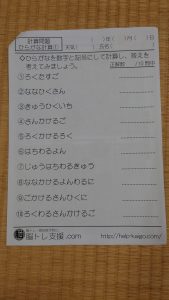 計算問題
ひらがな計算①
( )年( )月( )日
天気( ) 氏名( )
◇ひらがなを数字と記号にして計算し、答えを考えてみましょう。
正解数 /10問中
①ろくたすご
②ななひくさん
③きゅうひくいち
④さんかけるご
⑤ろくかけるろく
⑥はちわるよん
⑦じゅうはちわるきゅう
⑧ななかけるよんわるに
⑨ごかけるさんひくに
⑩ろくわるさんかけるご
脳トレ支援.com
http://help-kaigo.com/